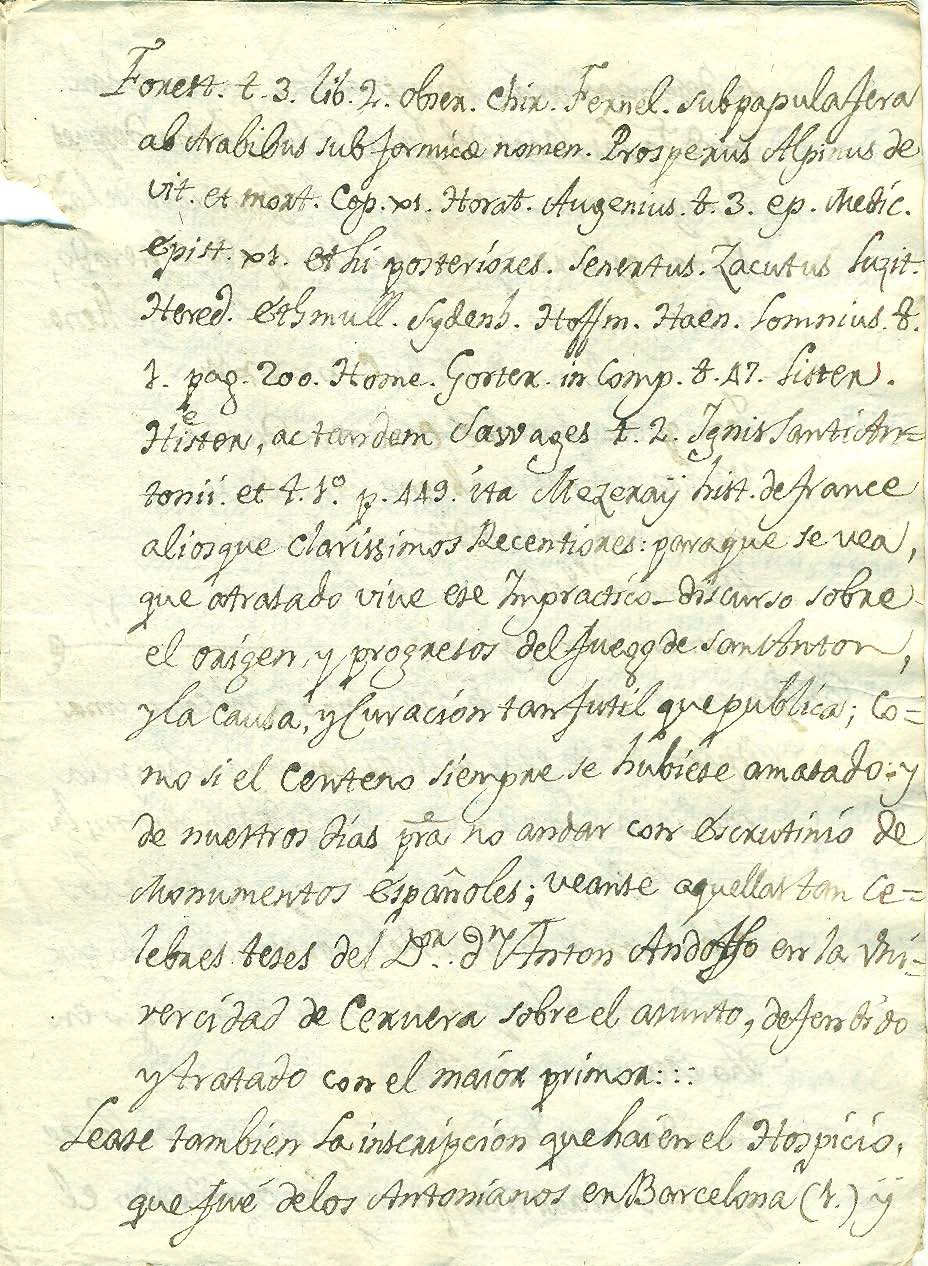 Forest. t. 3. lib. 2. obser. Chir. Fernel. sub papula fera
ab Arabibus sub formicæ nomen. Prosperus Alpinus de
vit. et mort. Cap. xi. Horat. Augenius. t. 3. ep. Medic.
epist. xi. et hi posteriores. Senertus. Zacutus Luzit.
Hered. Ethmull. Sydenh. Hoffm. Haen. Lomnius. t.
1. pag. 200. Home. Gorter. in Comp. t. 47. Lister.
Heister, ac tandem Sauvages t. 2. Ignis Santi An=
tonii. et t. 1º. p. 449. ita Mezeraÿ hist. de france
aliosque Clarissimos Recentiores: para que se vea,
que atrasado vive ese Impractico discurso sobre
el origen, y progresos del fuego de San Anton,
y la causa, y Curacion tan futil que publica; Co=
mo si el Centeno siempre se hubiese amasado: y
de nuestros dias pra no andar con Escrutinio de
Monumentos Españoles; veanse aquellas tan Ce=
lebres teses del Dor. dn Anton Andosso en la Uni=
vercidad de Cervera sobre el asunto, defendido
y tratado con el maior primor:::
Lease tambien la inscripcion que hai en el Hospicio,
que fué de los Antonianos en Barcelona (1.) ÿ